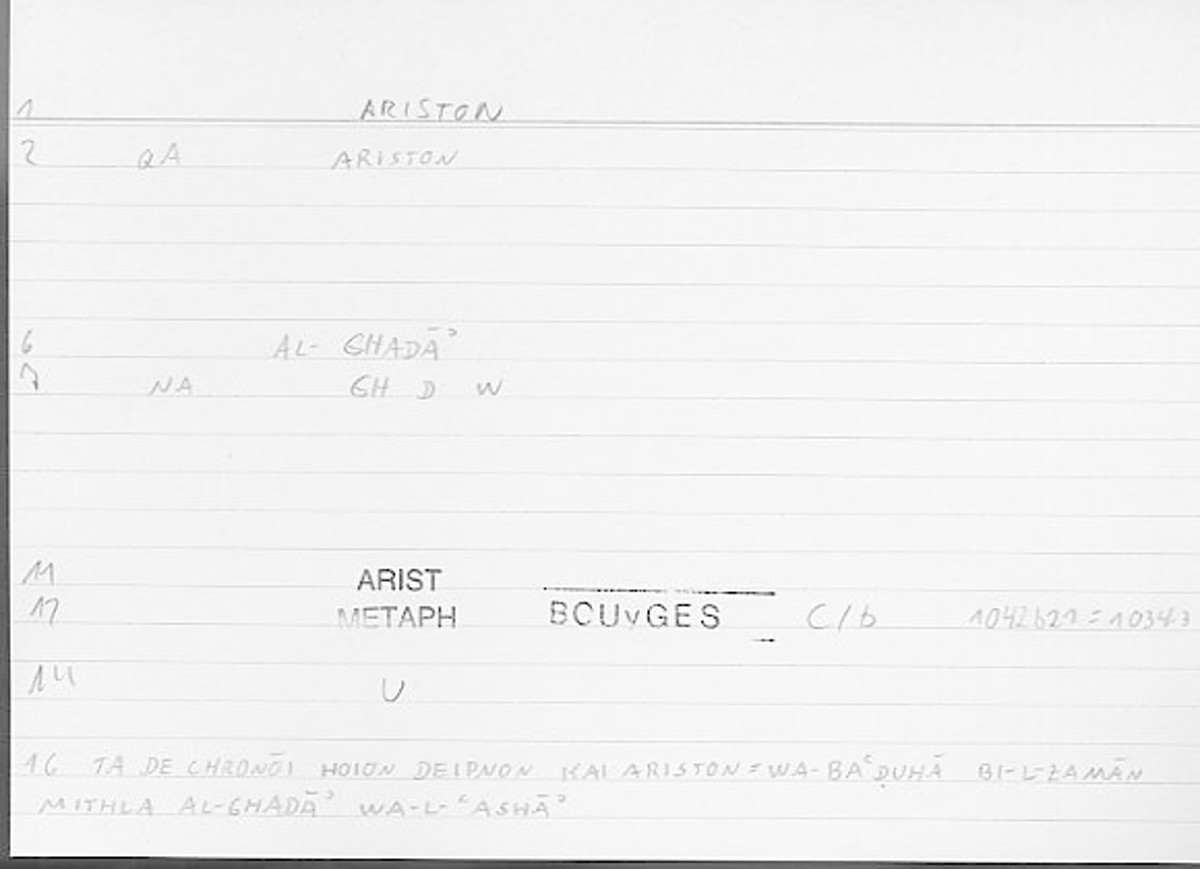 1 ARISTON
2 QA ARISTON
6 AL- GHADĀʾ
7 NA GH D W
11 ARIST
12 METAPH BOUYGES C/b 1042b21 = 1034.3
14 U
16 TA DE CHRONŌI HOION DEIPNON KAI ARISTON = WA-BAʿḌUHĀ BI-L-ZAMĀN
MITHLA AL-GHADĀʾ WA-L-ʿASHĀʾ